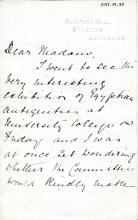 Dear Madam,
I went to see the
very interesting
exhibition of Egyptian
antiquities at
University College on
Friday and I was
at once set wondering
whether the Committee
would kindly make